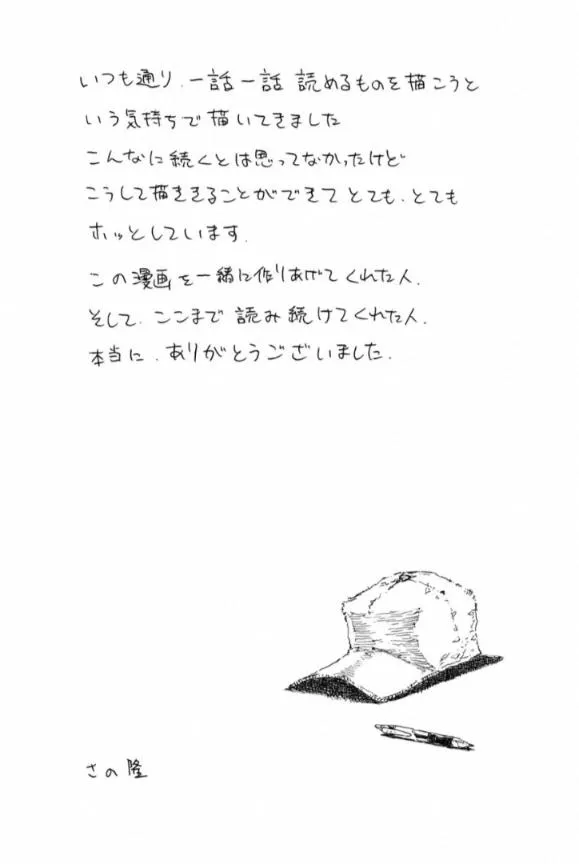 いつも通り、一話一話 読めるものを描こうと
いう気持ちで描いてきました
こんなに続くとは思ってなかったけど
こうして描ききることができてとても、とても
ホッとしています.
この漫画を一緒に作りあげてくれた人.
そして、ここまで読み続けてくれた人.
本当に、ありがとうございました.
さの隆